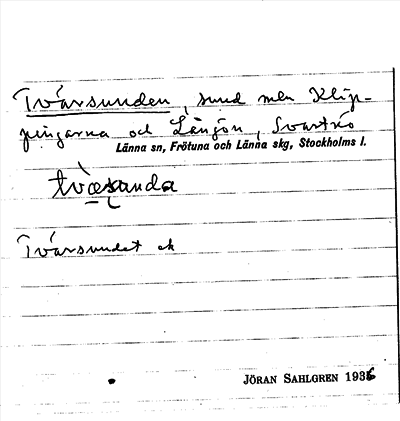 Tvärsunden, sund mln Klip-
pingarna och Långön, Svartnö
Länna sn, Frötuna och Länna skg, Stockholms l.
tvæsanda
Tvärsundet ek
JÖRAN SAHLGREN 1936